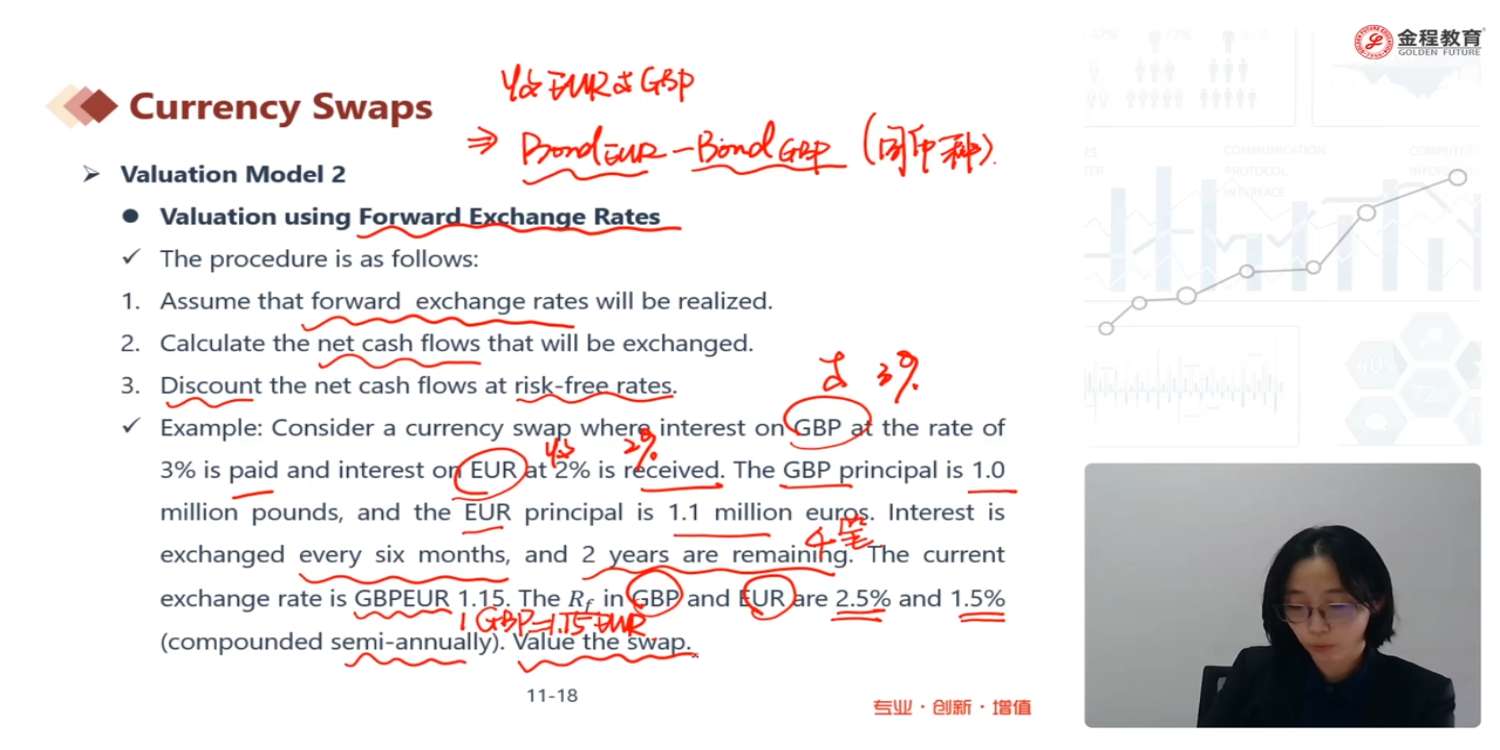 金程教育
GOLDEN FUTURE
收 EUR 付 GBP
Currency Swaps
⇒ Bond EUR - Bond GBP (同币种)
➢ Valuation Model 2
● Valuation using Forward Exchange Rates
✓ The procedure is as follows:
1. Assume that forward exchange rates will be realized.
2. Calculate the net cash flows that will be exchanged.
3. Discount the net cash flows at risk-free rates.
付 3%
✓ Example: Consider a currency swap where interest on GBP at the rate of
收 2%
3% is paid and interest on EUR at 2% is received. The GBP principal is 1.0
million pounds, and the EUR principal is 1.1 million euros. Interest is
4笔
exchanged every six months, and 2 years are remaining. The current
exchange rate is GBPEUR 1.15. The Rf in GBP and EUR are 2.5% and 1.5%
1 GBP=1.15 EUR
(compounded semi-annually). Value the swap.
11-18
专业·创新·增值
COMMUNICATION
PROTOCOL
INTERFACE